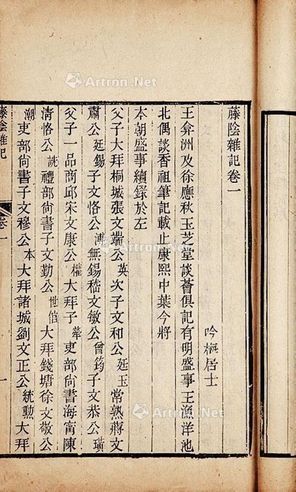 藤陰雜記卷一
吟楳居士
王弇洲及徐應秋玉芝堂談薈俱記有明盛事王漁洋池
北偶談香祖筆記載止康熙中葉今將
本朝盛事續錄於左
父子大拜桐城張文端公英次子文和公廷玉常熟蔣文
肅公廷錫子文恪公溥無錫嵇文敏公曾筠子文恭公璜
父子一品商邱宋文康公權大拜子犖吏部尚書海甯陳
清恪公詵禮部尚書子文勤公世倌大拜錢塘徐文敬公
潮吏部尚書子文穆公本大拜諸城劉文正公統勳大拜
藤陰雜記
卷一
Artron.Net
Artron.Net